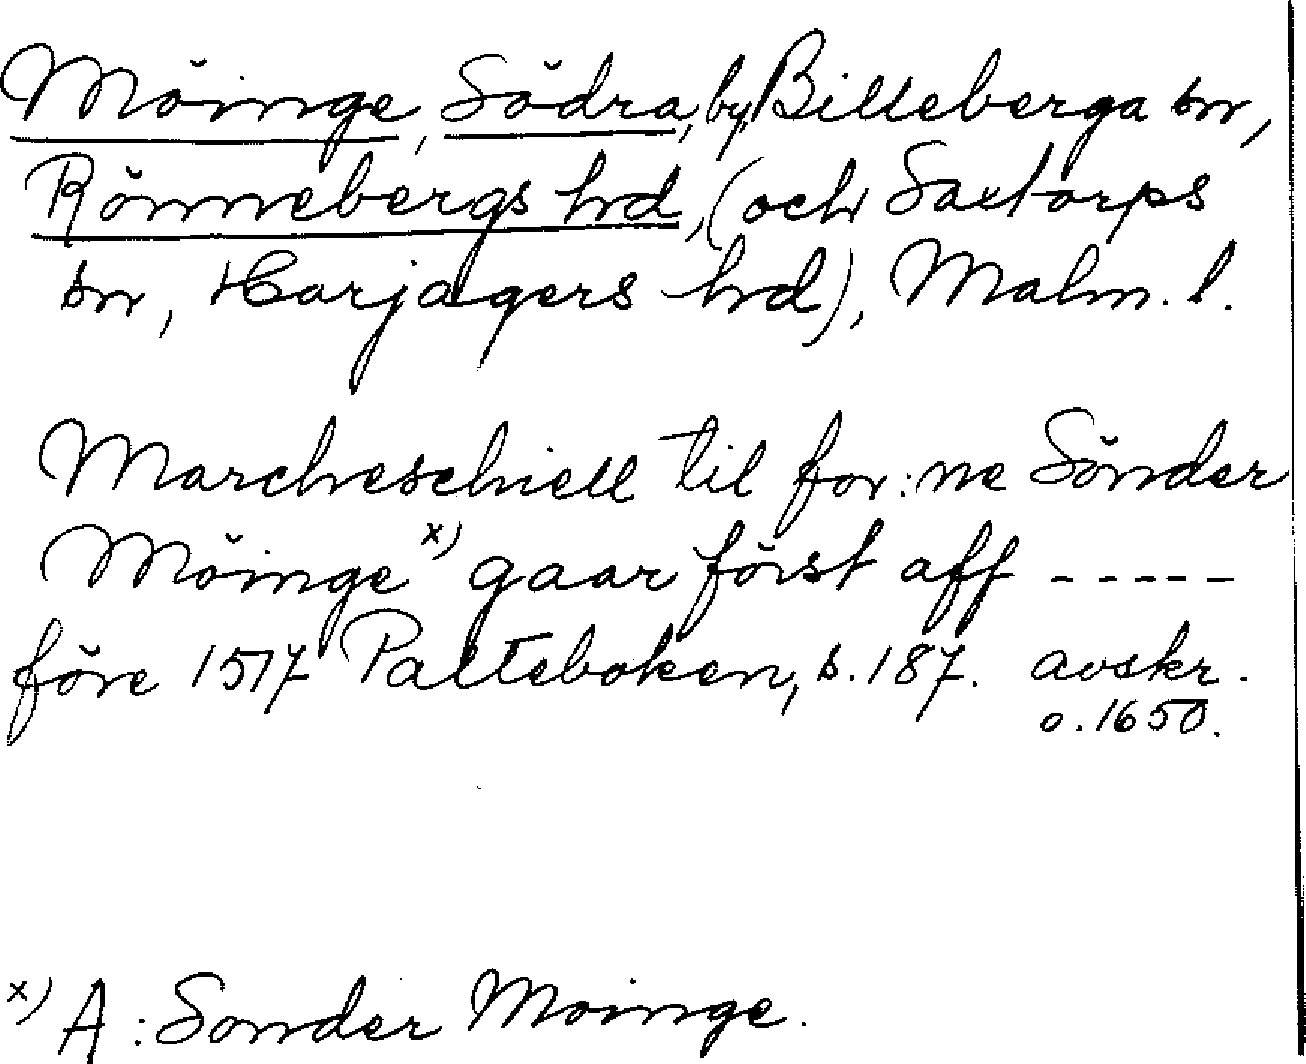 Möinge, Södra, by, Billeberga sn,
Rönnebergs hd, (och Saxtorps
sn, Harjagers hd), Malm. l.
Marcheschiell til for:ne Sönder
Möinge x) gaar först aff -----
före 1517 Palteboken, s. 187. avskr.
o. 1650.
x) A: Sonder Moinge.